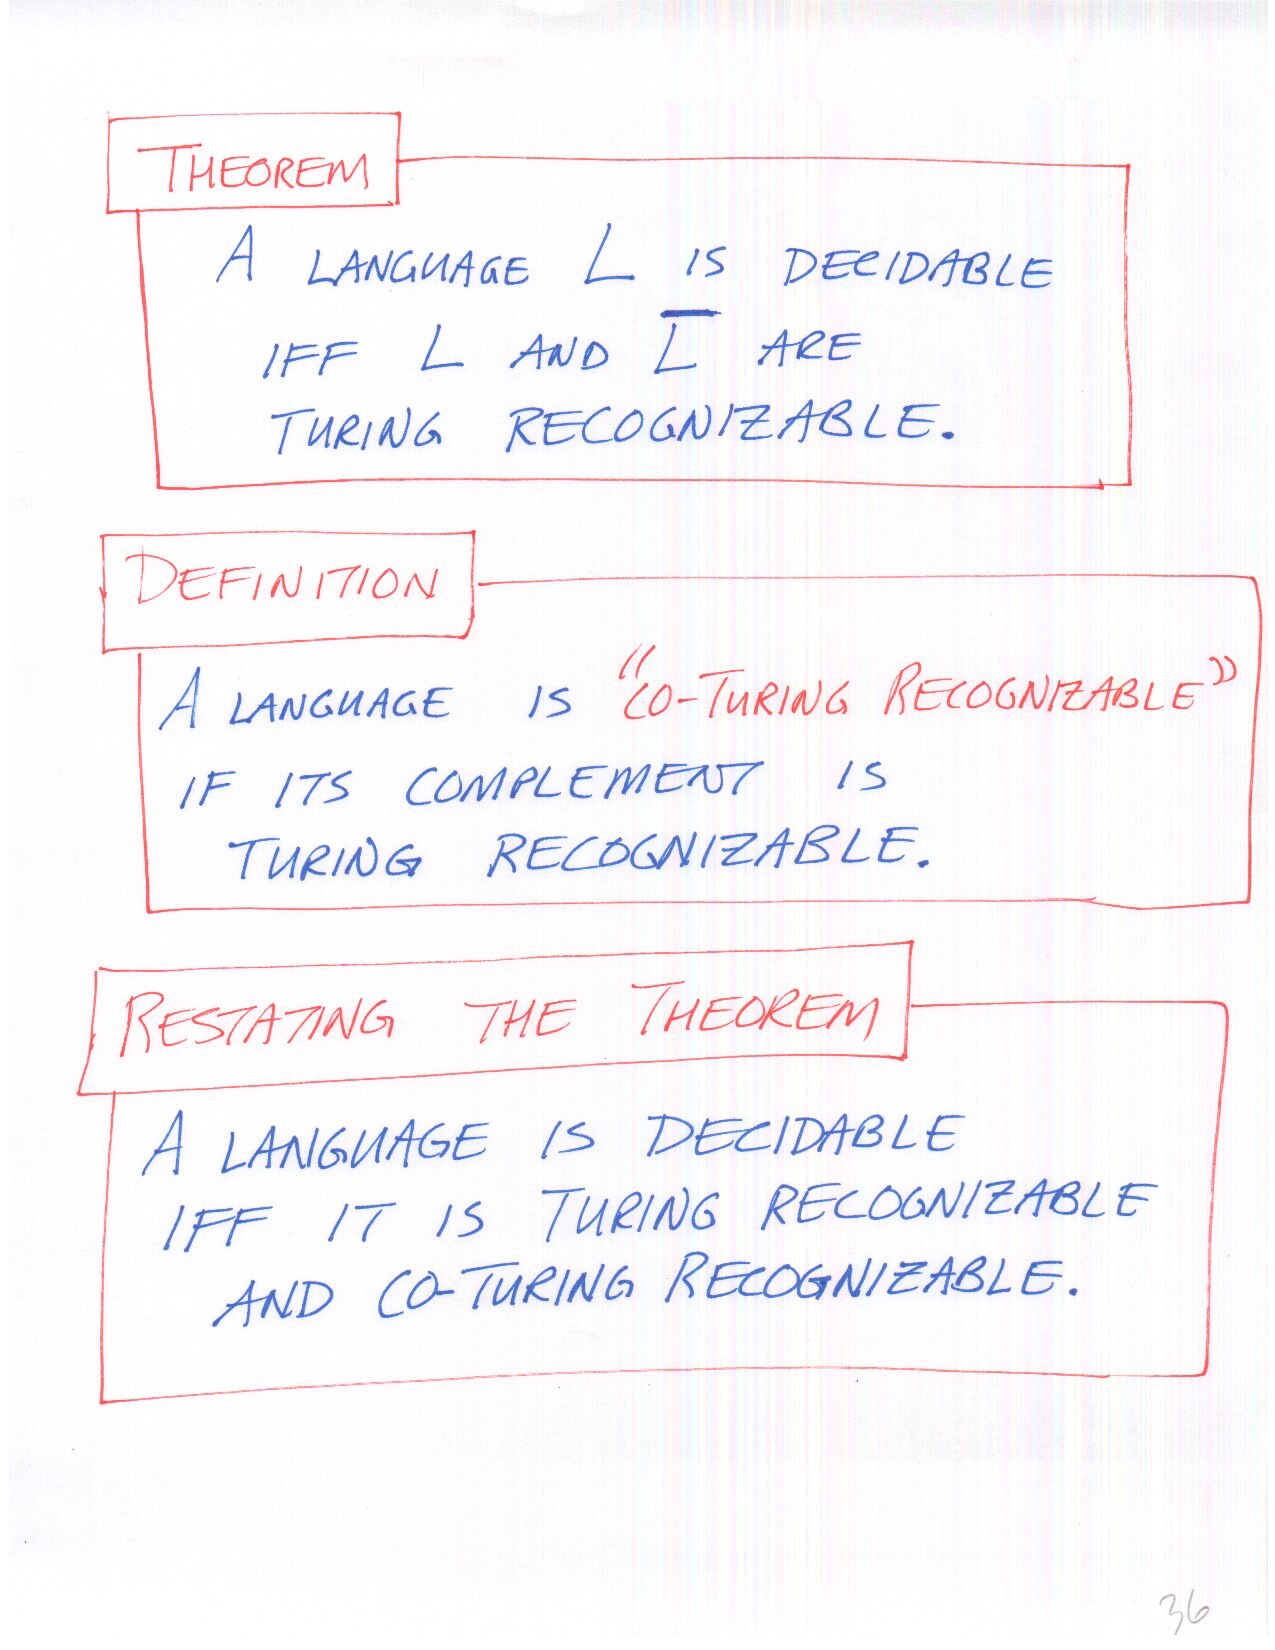 THEOREM
A LANGUAGE L IS DECIDABLE
IFF L AND L̅ ARE
TURING RECOGNIZABLE.
DEFINITION
A LANGUAGE IS "CO-TURING RECOGNIZABLE"
IF ITS COMPLEMENT IS
TURING RECOGNIZABLE.
RESTATING THE THEOREM
A LANGUAGE IS DECIDABLE
IFF IT IS TURING RECOGNIZABLE
AND CO-TURING RECOGNIZABLE.
36